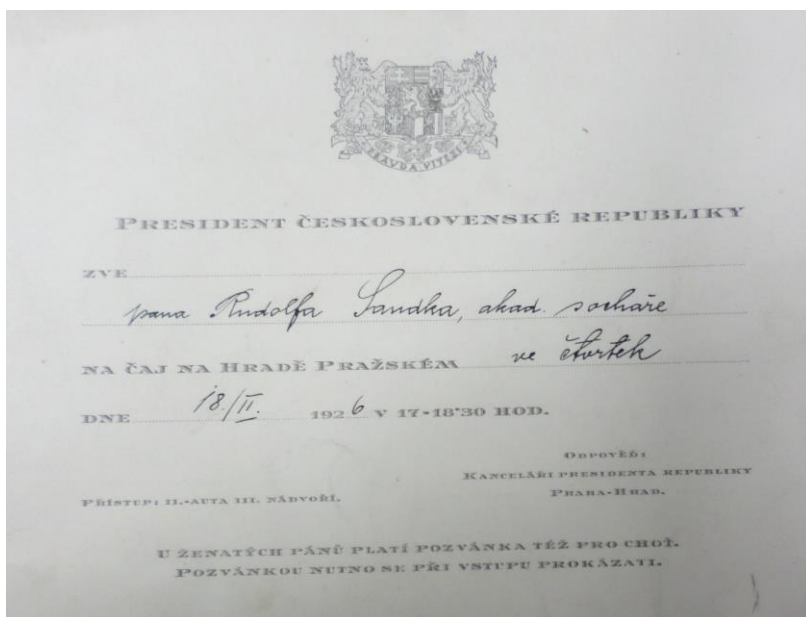 PRAVDA VÍTĚZÍ
PRESIDENT ČESKOSLOVENSKÉ REPUBLIKY
ZVE
pana Rudolfa Sandka, akad. sochaře
NA ČAJ NA HRADĚ PRAŽSKÉM ve čtvrtek
DNE 18./II. 1926 V 17-18'30 HOD.
ODPOVĚĎ:
KANCELÁŘI PRESIDENTA REPUBLIKY
PRAHA-HRAD.
PŘÍSTUP: II.-AUTA III. NÁDVOŘÍ.
U ŽENATÝCH PÁNŮ PLATÍ POZVÁNKA TÉŽ PRO CHOŤ.
POZVÁNKOU NUTNO SE PŘI VSTUPU PROKÁZATI.